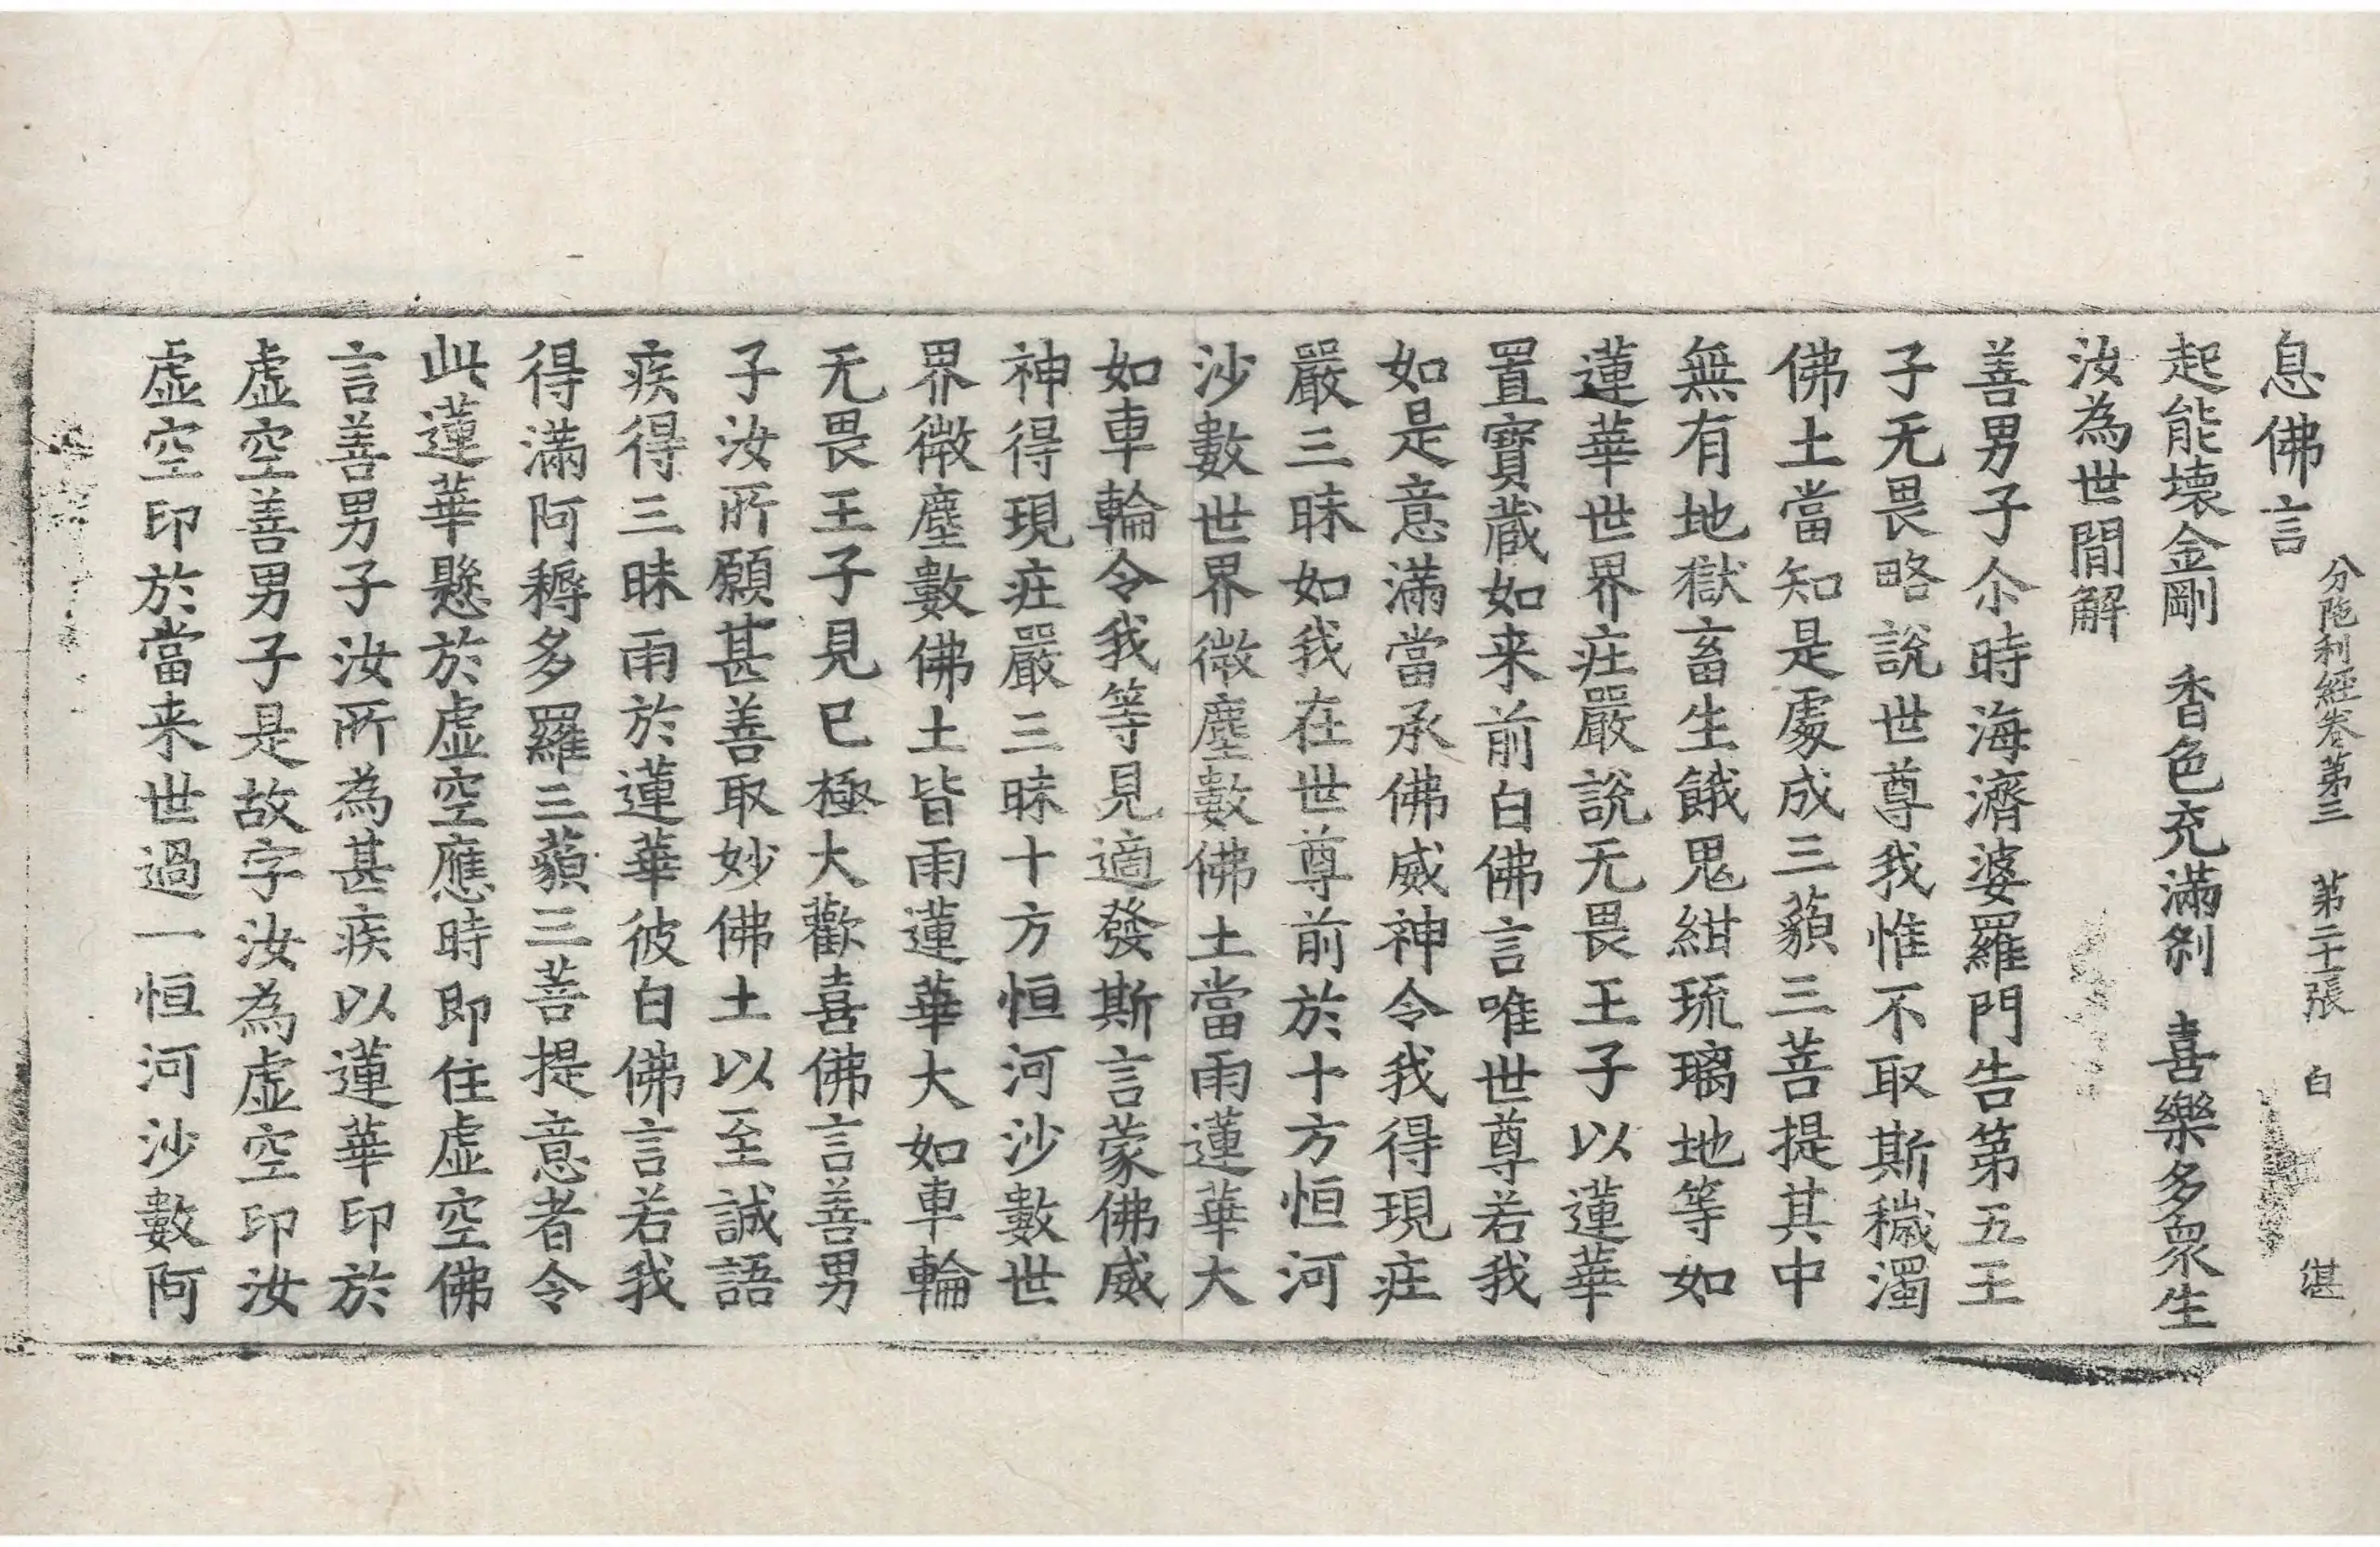 息佛言
分陁利經卷第三　第二十一張　白　湛
起能壞金剛　香色充滿剎　喜樂多衆生
汝為世間解
善男子尒時海濟婆羅門告第五王
子无畏略說世尊我惟不取斯穢濁
佛土當知是處成三藐三菩提其中
無有地獄畜生餓鬼紺琉璃地等如
蓮華世界莊嚴說无畏王子以蓮華
置寶藏如来前白佛言唯世尊若我
如是意滿當承佛威神令我得現莊
嚴三昧如我在世尊前於十方恒河
沙數世界微塵數佛土當雨蓮華大
如車輪令我等見適發斯言蒙佛威
神得現莊嚴三昧十方恒河沙數世
界微塵數佛土皆雨蓮華大如車輪
无畏王子見已極大歡喜佛言善男
子汝所願甚善取妙佛土以至誠語
疾得三昧雨於蓮華彼白佛言若我
得滿阿耨多羅三藐三菩提意者令
此蓮華懸於虛空應時即住虛空佛
言善男子汝所為甚疾以蓮華印於
虛空善男子是故字汝為虛空印汝
虛空印於當来世過一恒河沙數阿